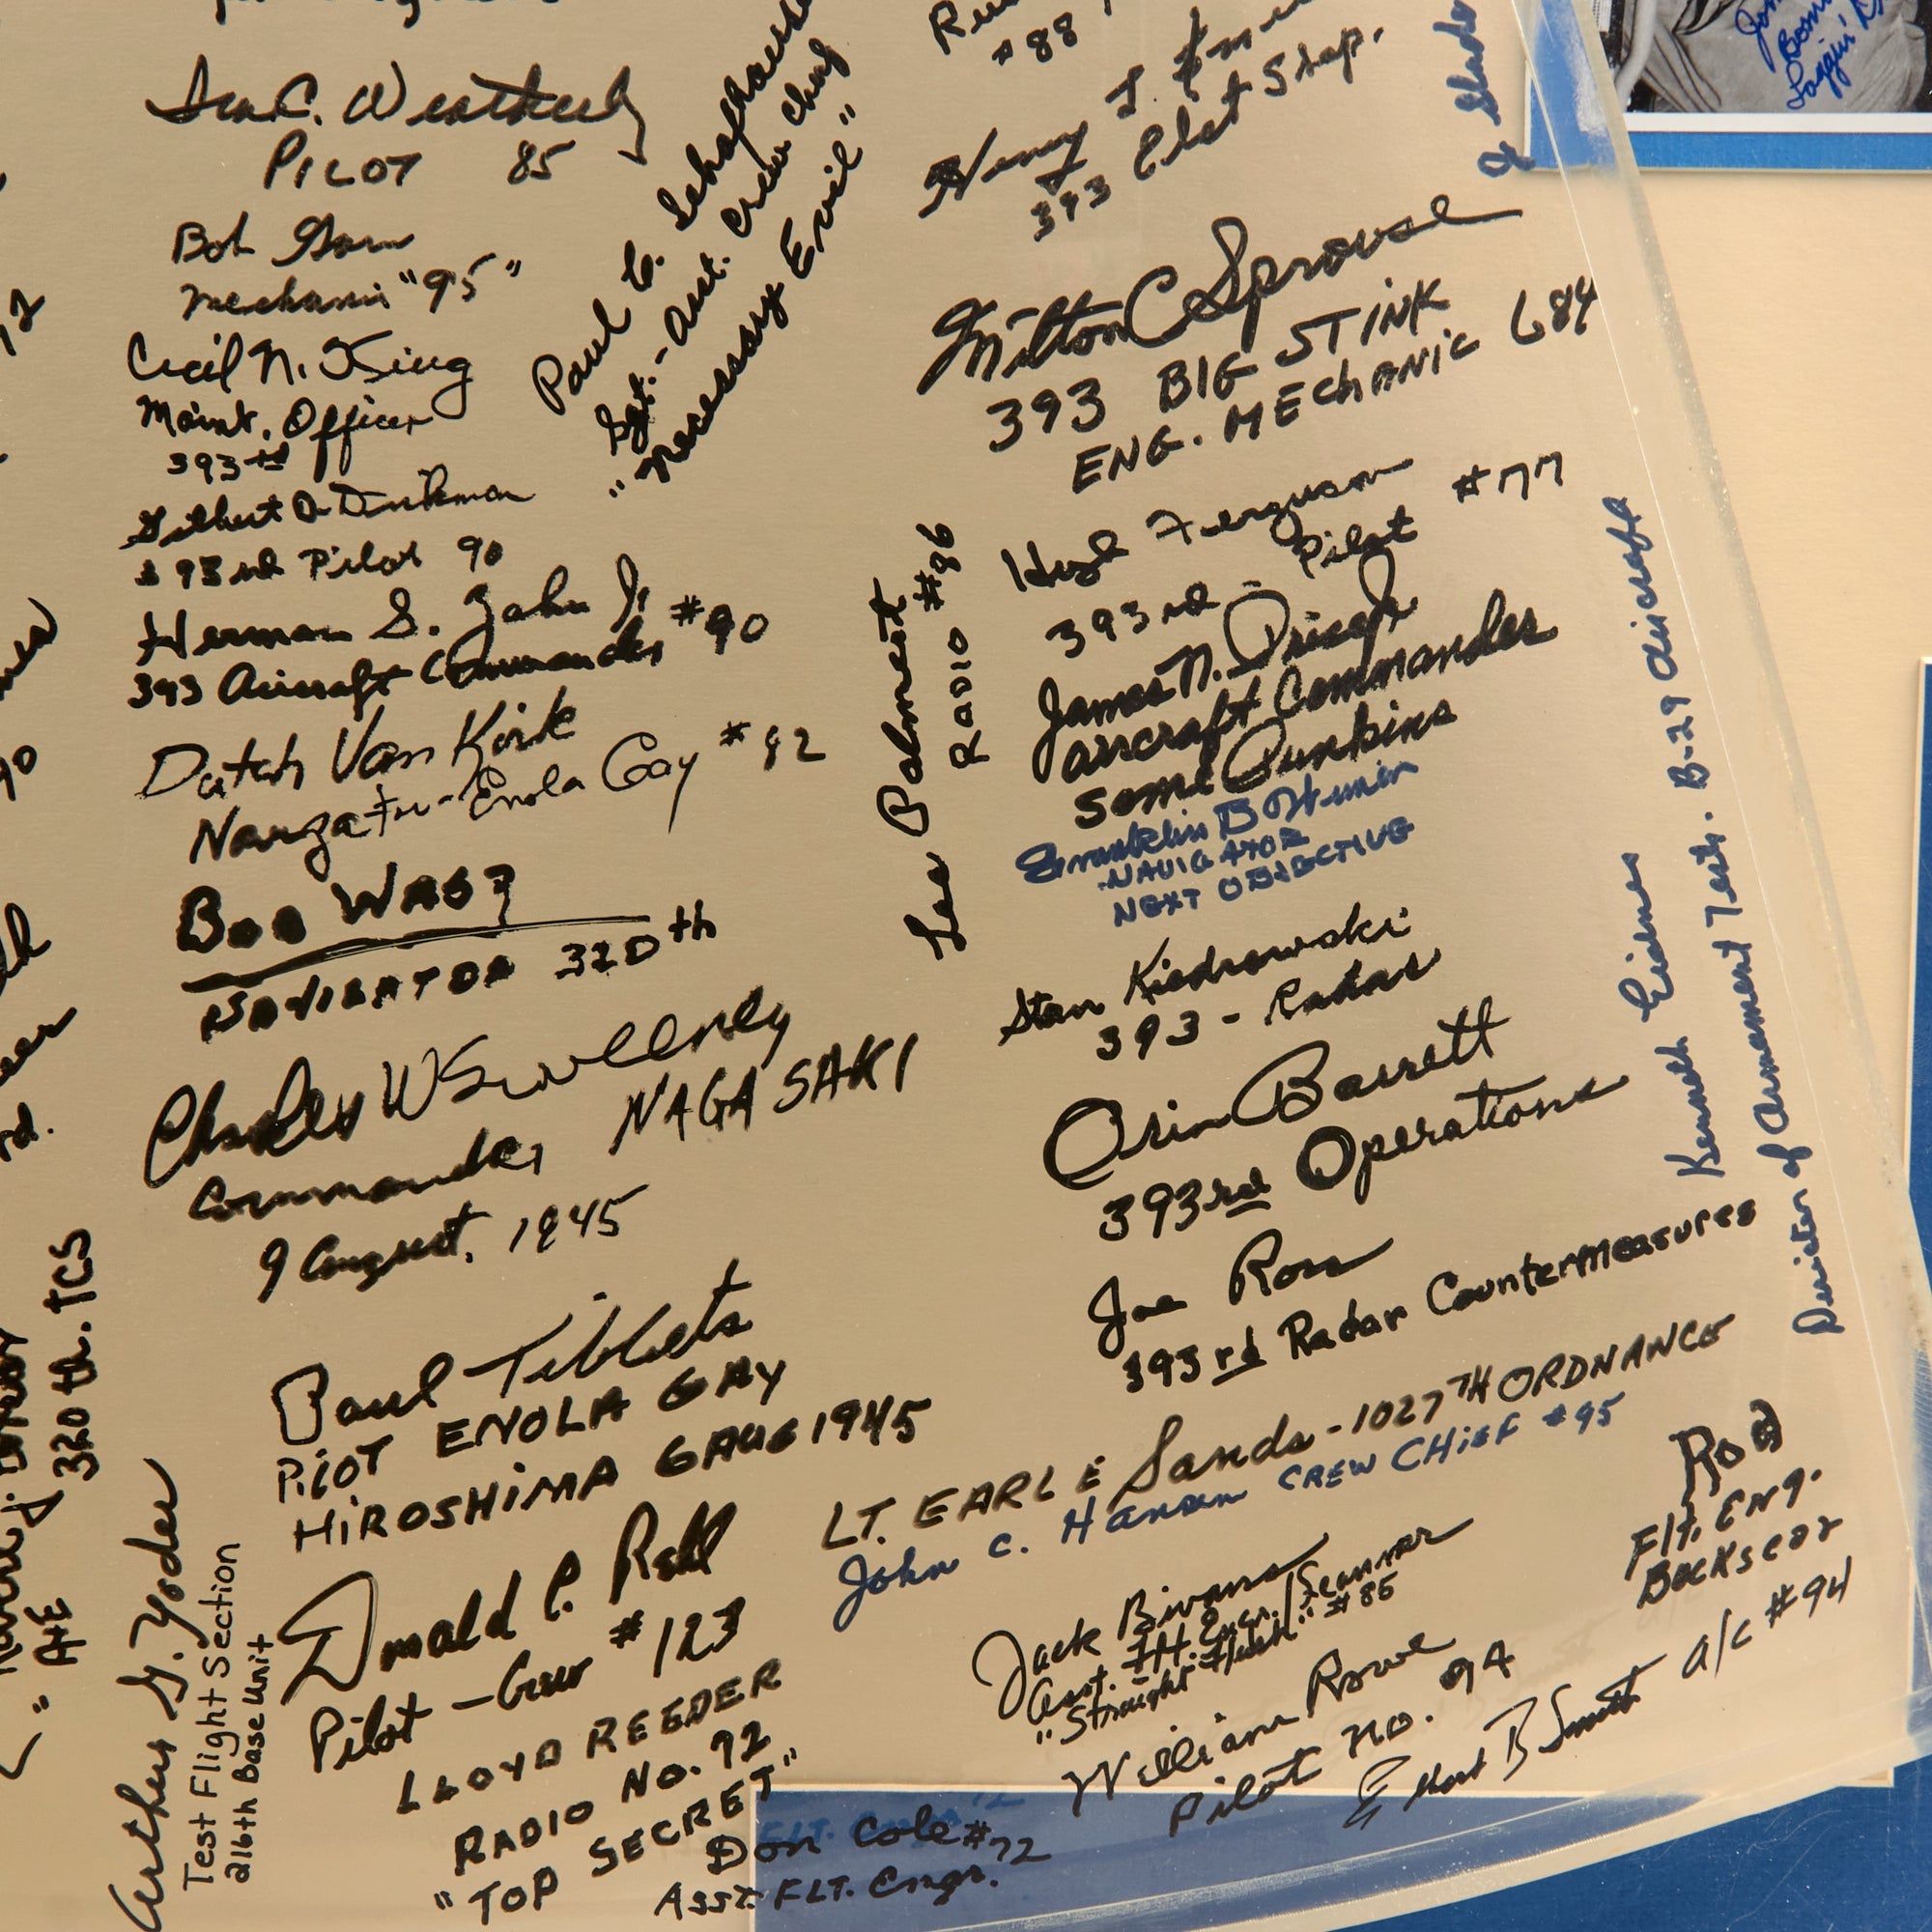 C. Weatherly
PILOT 85
Bob
Mechanic "95"
Cecil N. King
Maint. Officer
393rd
Gilbert D. Dickman
393rd Pilot 90
Herman S. Zahn Jr. #90
393 Aircraft Commander
Dutch Van Kirk
Navigator - Enola Gay #82
NAVIGATOR 320th
Charles W Sweeney
Commander NAGASAKI
9 August, 1945
Paul Tibbets
PilOT ENOLA GAY
HIROSHIMA 6 AUG 1945
Donald P. Rohl
Pilot - Crew #123
LLOYD REEDER
RADIO NO. 72
"TOP SECRET"
Don Cole #72
ASST. FLT. Engr.
Arthur G. Yoder
Test Flight Section
216th Base Unit
320 th. TCS
Paul G.
Sgt. - Asst. Crew Chief
"Necessary Evil"
#88
Henry J.
393 Elect Shop.
Milton C Sprouse
393 BIG STINK
ENG. MEChANIC 684
Lee Palmert
RADIO #96
Hugh Ferguson #77
393rd - Pilot
James N. Price Jr
aircraft Commander
Some Punkins
Franklin B
NAVIGATOR
NEXT OBJECTIVE
Stan Kiedrowski
393 - Radar
Orin Barrett
393rd Operations
Joe Ross
393rd Radar Countermeasures
LT. EARLE Sands - 1027TH ORDNANCE
John C. Hansen CREW CHiEF #95
Jack Bivans
Asst. Flt. Engr./Scanner
"Straight Flush" #85
William Rowe
Pilot no. 94
Elbert B Smith a/c #94
Rod
Flt. Eng.
Bockscar
Kenneth Eidnes
Director of Armament Tests. B-29 aircraft